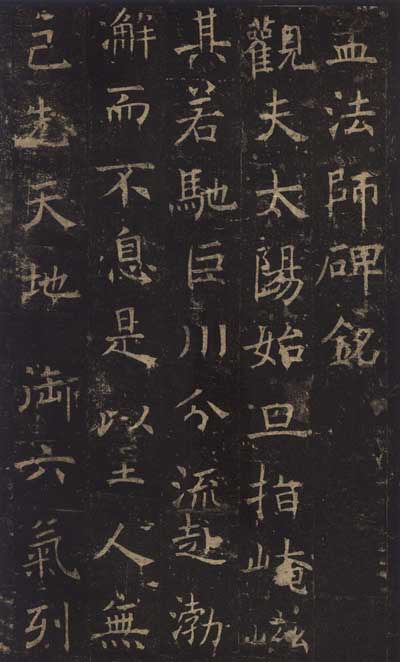 皿法師碑銘
觀夫太陽始旦指崦嵫
其若馳巨川分流赴渤
澥而不息是以至人無
己先天地 御六氣列